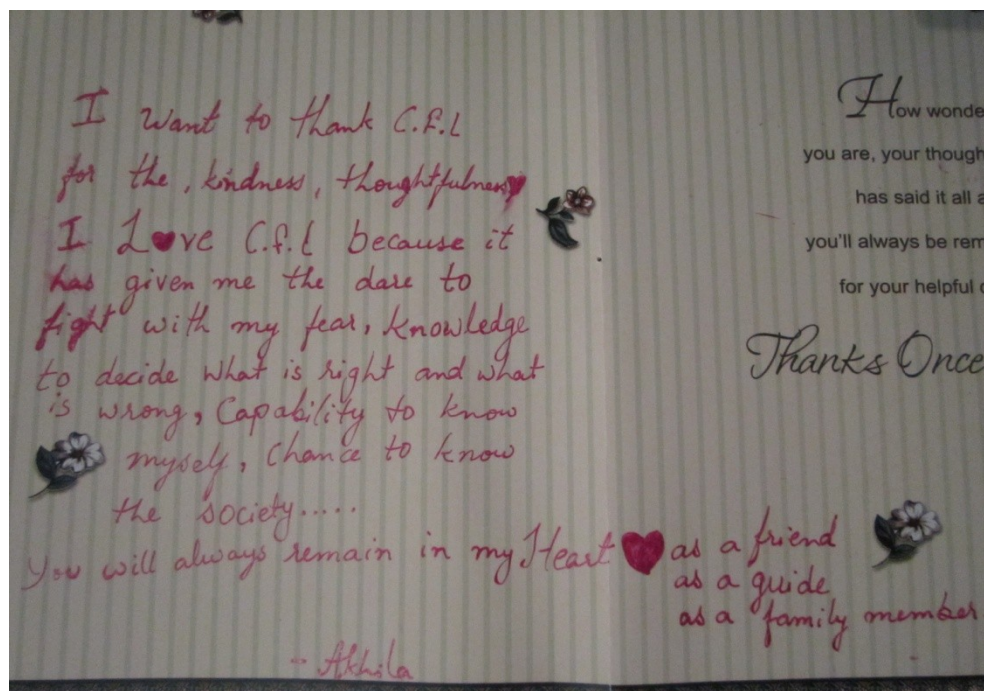 I want to thank C.F.L
for the, kindness, thoughtfulness
I Love C.f.l because it
has given me the dare to
fight with my fear, knowledge
to decide what is right and what
is wrong, Capability to know
myself, Chance to know
the society.....
You will always remain in my Heart as a friend
as a guide
as a family member
- Akhila
How wonde
you are, your though
has said it all a
you'll always be rem
for your helpful
Thanks Once